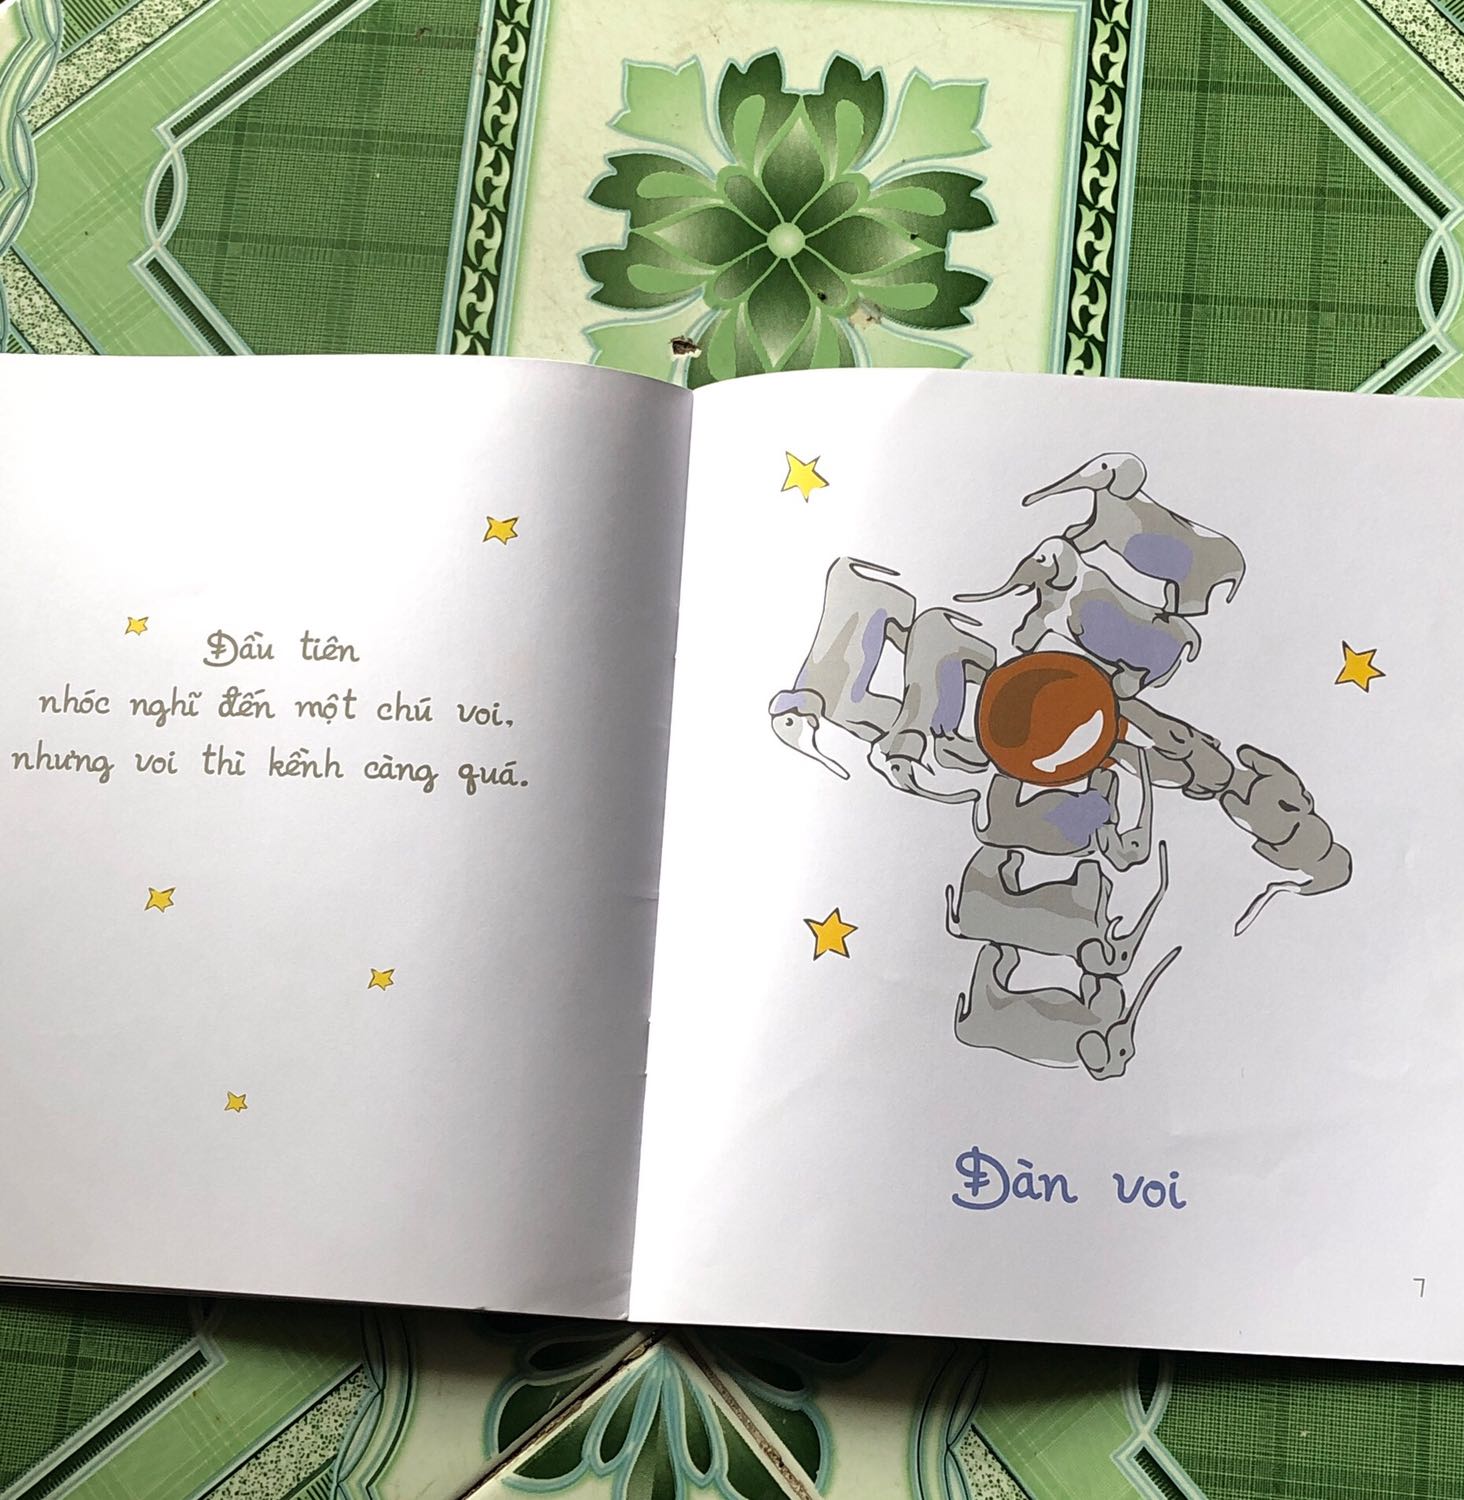 Đầu tiên
nhóc nghĩ đến một chú voi,
nhưng voi thì kềnh càng quá.
Đàn voi
7